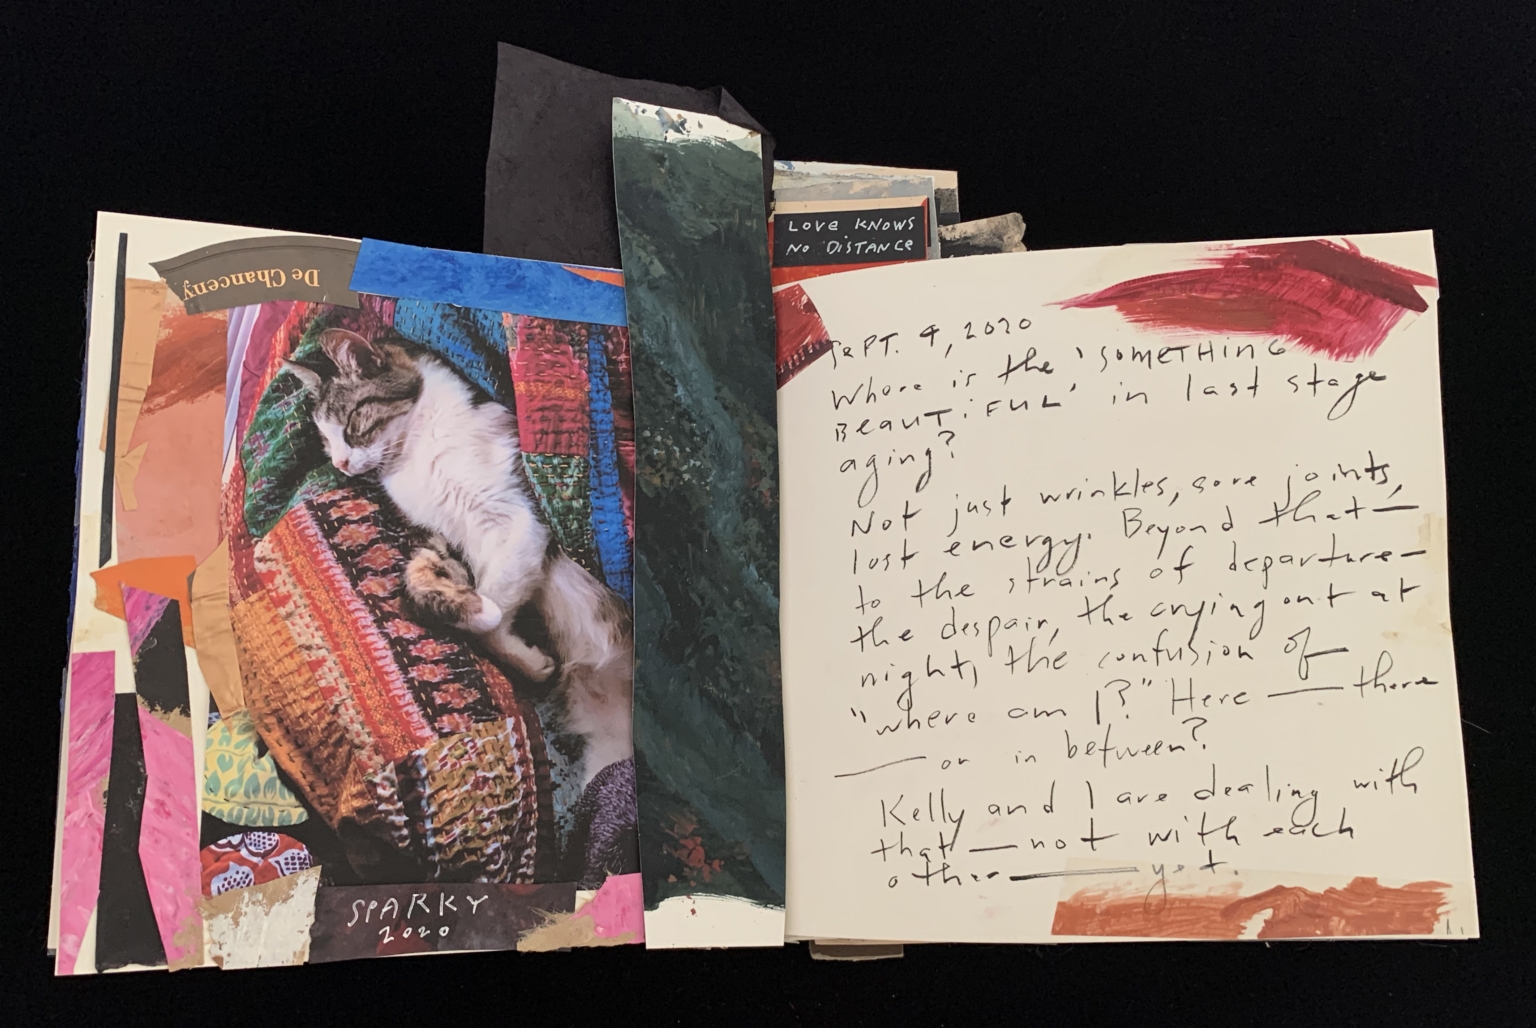 De Chanceny
LOVE KNOWS
NO DISTANCE
SPARKY
2020
SEPT. 4, 2020
Where is the 'SOMETHING
BEAUTIFUL' in last stage
aging?
Not just wrinkles, sore joints,
lost energy. Beyond that—
to the strains of departure—
the despair, the crying out at
night, the confusion of
"where am I?" Here — there
— or in between?
Kelly and I are dealing with
that — not with each
other — yet.